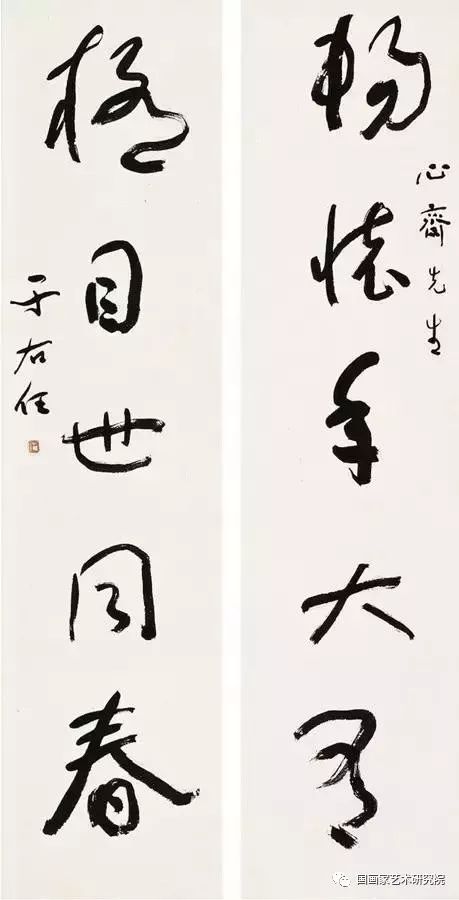 畅怀年大有
心齋先生
极目世同春
于右任
国画家艺术研究院